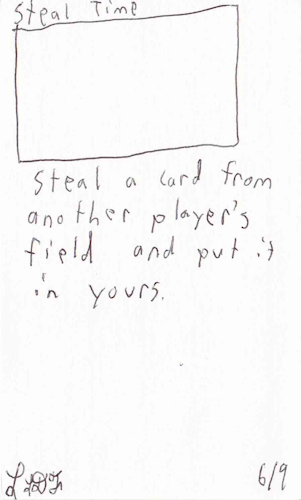 Steal Time
Steal a card from
another player's
field and put it
in yours.
6/9